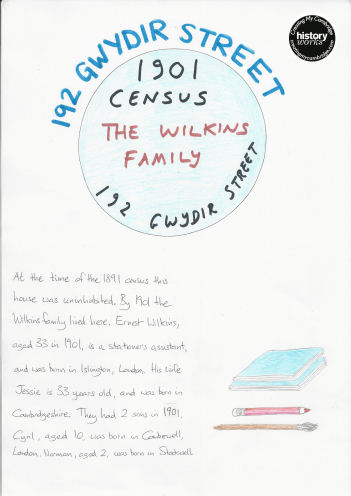 192 GWYDIR STREET
Creating My Cambridge
history
WORKS
creatingmycambridge.com
1901
CENSUS
THE WILKINS
FAMILY
192 GWYDIR STREET
At the time of the 1891 census this
house was uninhabited. By 1901 the
Wilkins family lived here. Ernest Wilkins,
aged 33 in 1901, is a stationers assistant,
and was born in Islington, London. His wife
Jessie is 33 years old, and was born in
Cambridgeshire. They had 2 sons in 1901.
Cyril, aged 10, was born in Camberwell,
London. Norman, aged 2, was born in Stockwell.